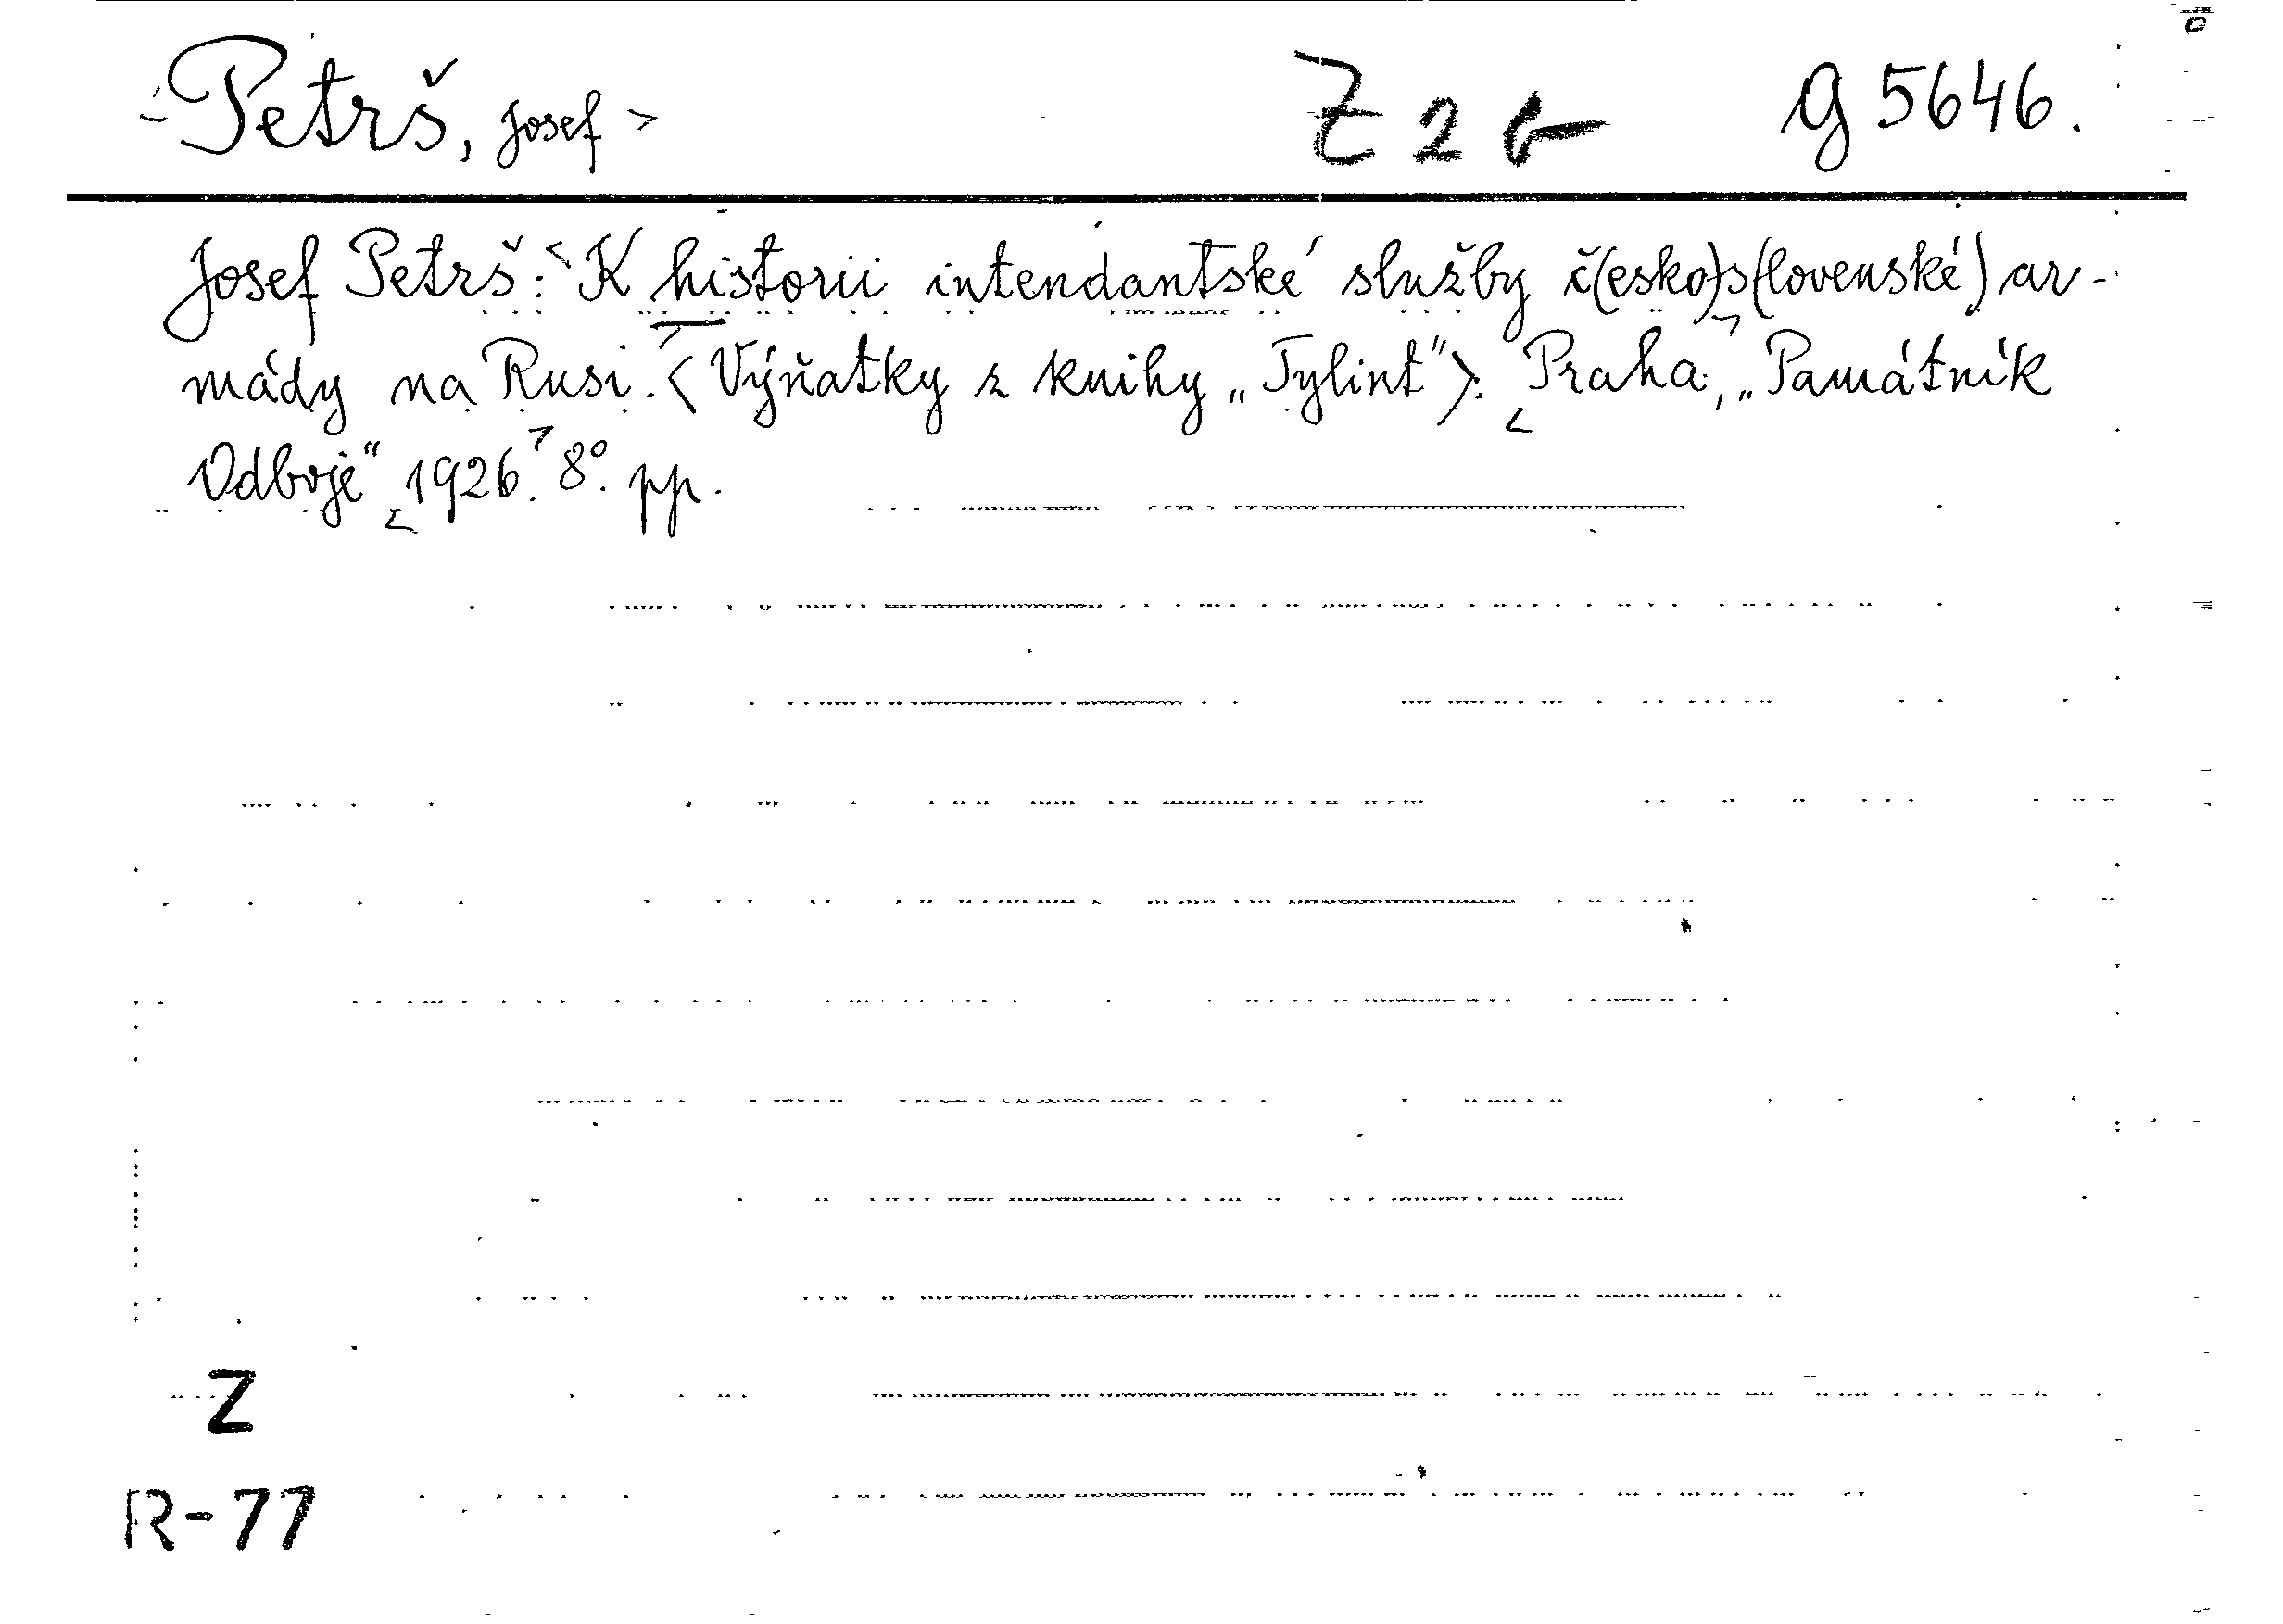 Petrš, Josef > Z 2 b g 5646.
Josef Petrš: K historii intendantské služby č(esko)s(lovenské) ar-
mády na Rusi. <Výňatky z knihy „Tylint">. Praha, „Památník
Odboje" 1926. 8°. pp.
Z
R-77